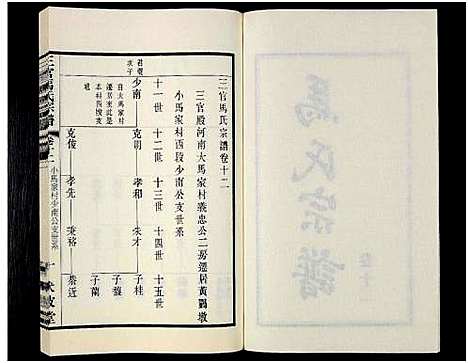 三官馬氏宗譜卷十二
三官殿河南大馬家村義忠公二房遷居黃鸝墩
小馬家村西段少南公支世系
十一世 十二世 十三世 十四世 十五世
君寵次子
少南 克明 孝和 朱才 子桂
自大馬家村遷居本村西段支
子魏
子蘭
克俊 孝先 秉裕 紫近
三官馬氏宗譜 卷十二 小馬家村少南公支世系 一 伏波堂
馬氏宗譜